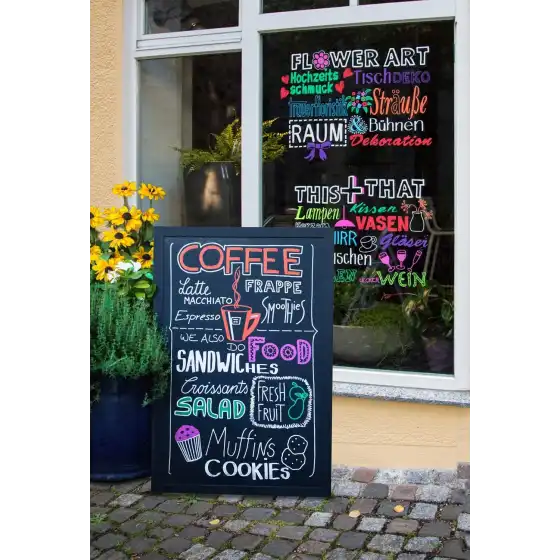 FLOWER ART
Hochzeits TischDEKO
schmuck
Trauerfloristik Sträuße
RAUM & Bühnen
Dekoration
THIS + THAT
Lampen Kissen
Kerzen VASEN
Gläser
WEIN
COFFEE
Latte FRAPPE
MACCHIATO
Espresso SMOOTHIES
WE ALSO
DO FOOD
SANDWICHES
Croissants FRESH
SALAD FRUIT
Muffins
COOKIES